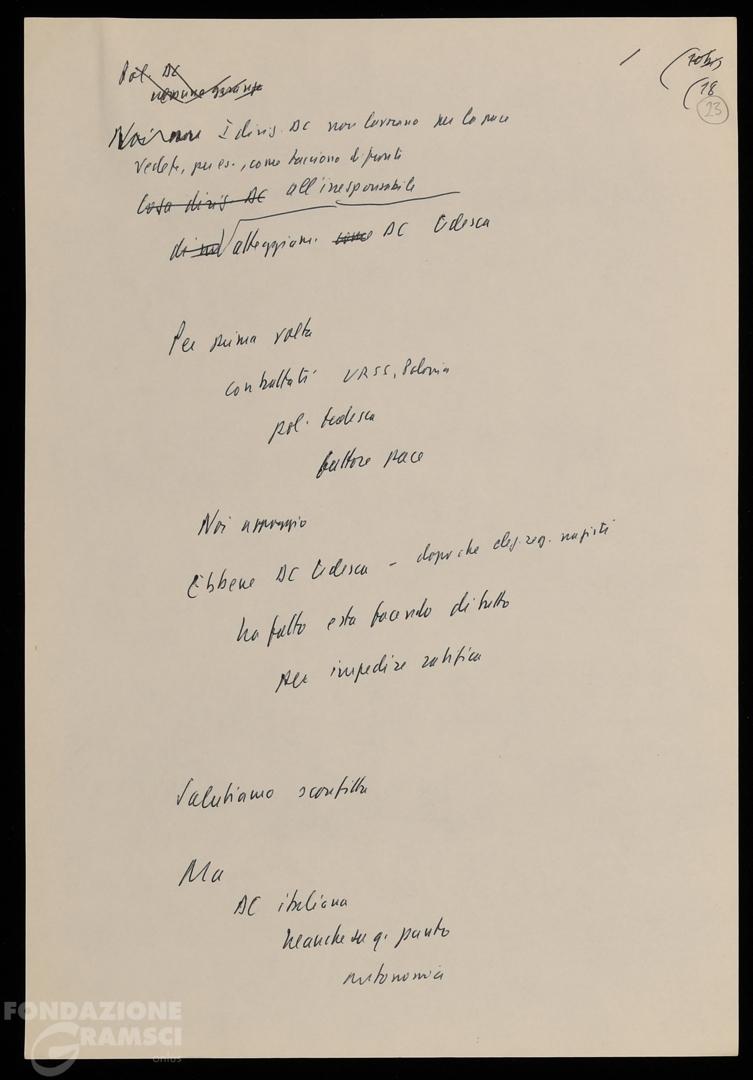 Pol. DC
nessuna garanzia
Noi non I dirig. DC non lavorano per la pace
Vedete, per es., come tacciono di fronte
Cosa dirig. DC all'irresponsabile
di atteggiam. come DC tedesca
Per prima volta
con trattati URSS, Polonia
pol. tedesca
fattore pace
Noi appoggio
Ebbene DC tedesca - dopo che eleg. reg. nazisti
ha fatto e sta facendo di tutto
per impedire ratifica
Salutiamo sconfitta
Ma
DC italiana
neanche su q. punto
autonomia
18
23
FONDAZIONE
GRAMSCI
onlus